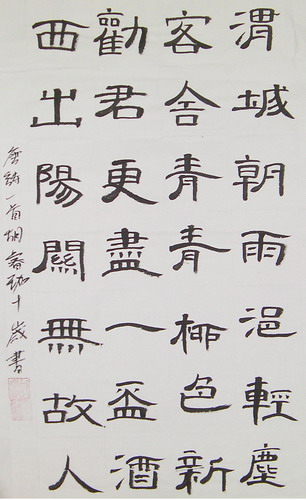 渭城朝雨浥輕塵
客舍青青柳色新
勸君更盡一盃酒
西出陽關無故人
唐詩一首 十歲書